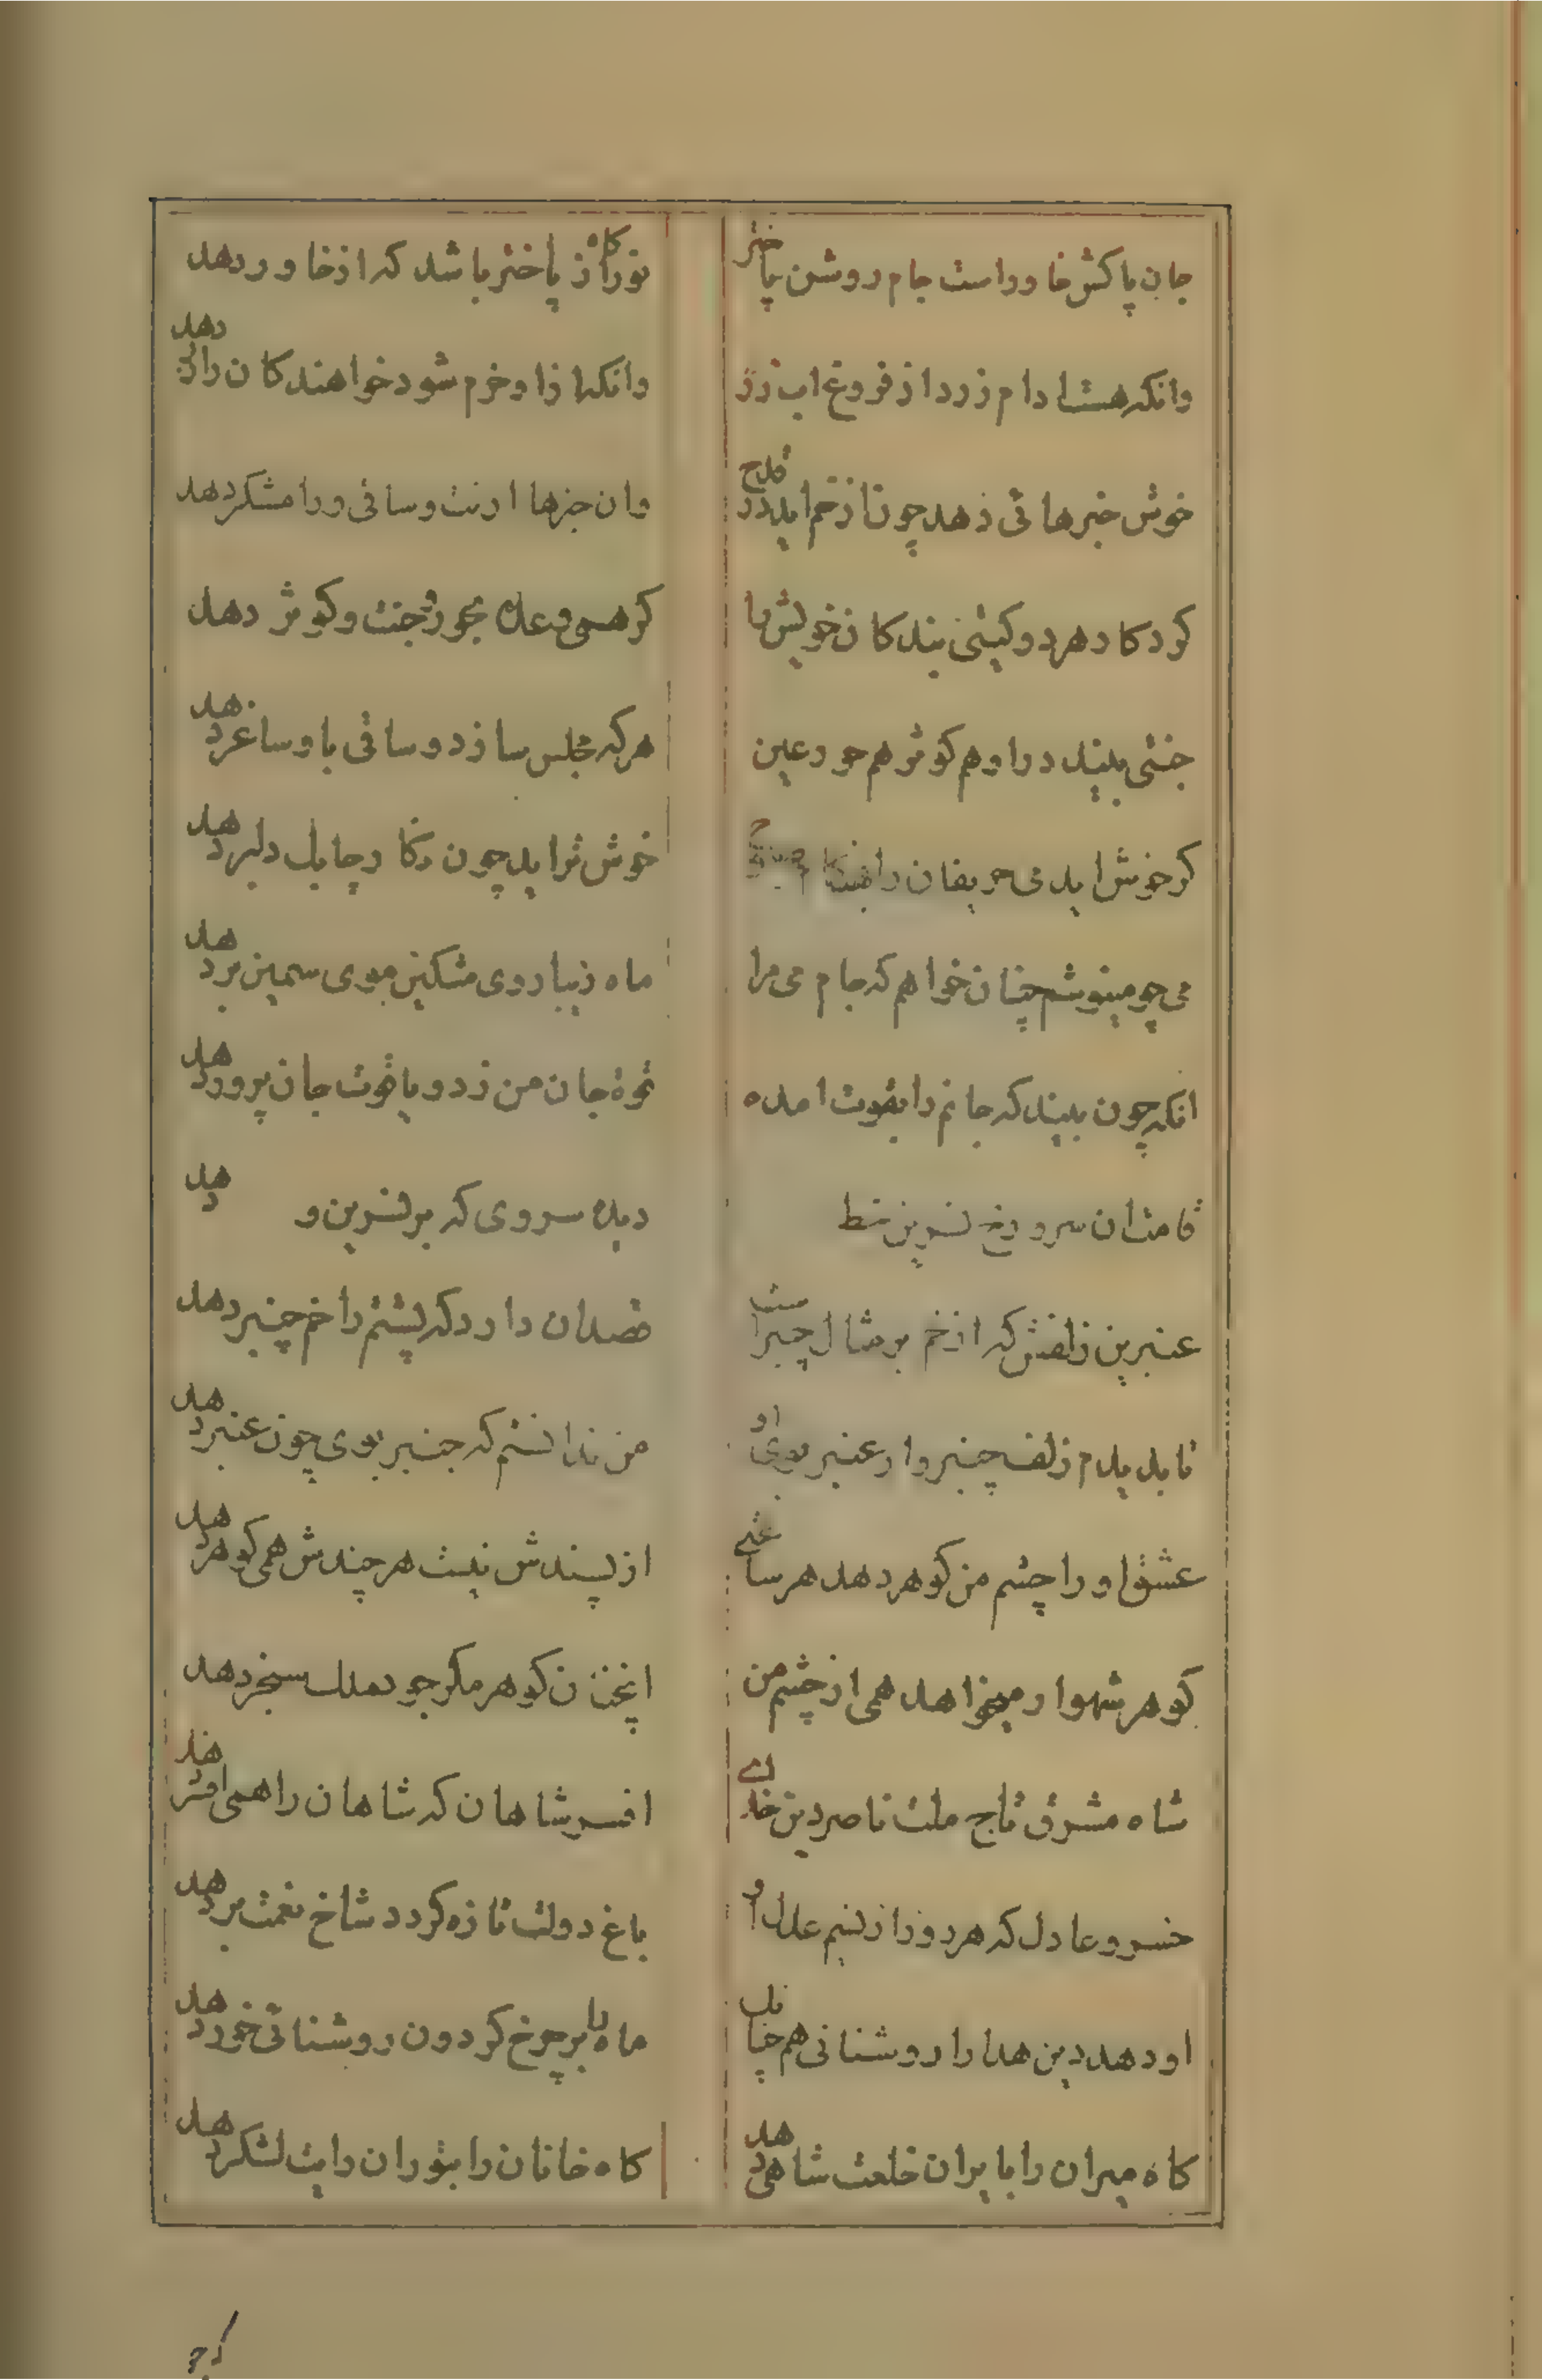 جان پاکش خاوراست جام روشن باختر
نور کاه از باختر باشد که از خاور دهد
وانکه هست ادام زرد از فروغ اب زر
وانکه را زا و خرم شود خواهندکان را زر دهد
خوش خبرهائی دهد چون از خم اید در قدح
وان خبرها ارنت و ساقی و رامشکر دهد
کردکار هر دو کیتی بندکان خویش را
کر همی وعده بحور و جنت و کوثر دهد
جنتی بیند در او هم کوثر هم حور عین
هرکه مجلس سازد و ساقی باو ساغر دهد
کر خوش اید می حریفان را هنکام
خوش تر اید چون نکار چابک دلبر دهد
می چو مینوشم چنان خواهم که جام می مرا
ماه زیبا روی مشکین موی سیمین بر دهد
انکه چون بیند که جانم را بقوت امده
قوة جان من زد و یاقوت جان پرور دهد
قامت ان سرو رخ نسرین خط
دیده سروی که بر نسرین و دهد
عنبرین زلفش که از خم بر مثال چنبر است
قصد ان دارد که پشتم را خم چنبر دهد
تا بدیدم زلف چنبروار عنبر بوی او
من ندانستم که چنبر بوی چون عنبر دهد
عشق او را چشم من کوهر دهد هر ساعتی
از پسندش نیست هر چندش همی کوهر دهد
کوهر شهوار میخواهد همی از چشم من
اینچنان کوهر مکر جود ملک سنجر دهد
شاه مشرق تاج ملت ناصر دین خدای
افسر شاهان که شاهان را همی افسر دهد
خسرو عادل که هر روز از نسیم عدل او
باغ دولت تازه کردد شاخ نعمت بر دهد
او دهد دین هدا را روشنائی هم چنانک
ماه را بر چرخ کردون روشنائی خور دهد
کاه میران را بایران خلعت شاهی دهد
کاه خانان را بتوران رایت لشکر دهد